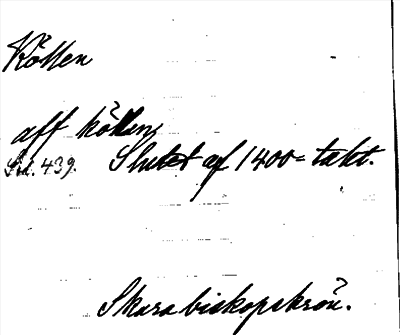 Kötten
aff kötten,
Sid. 439. Slutet af 1400=talet.
Skarabiskopskrön.